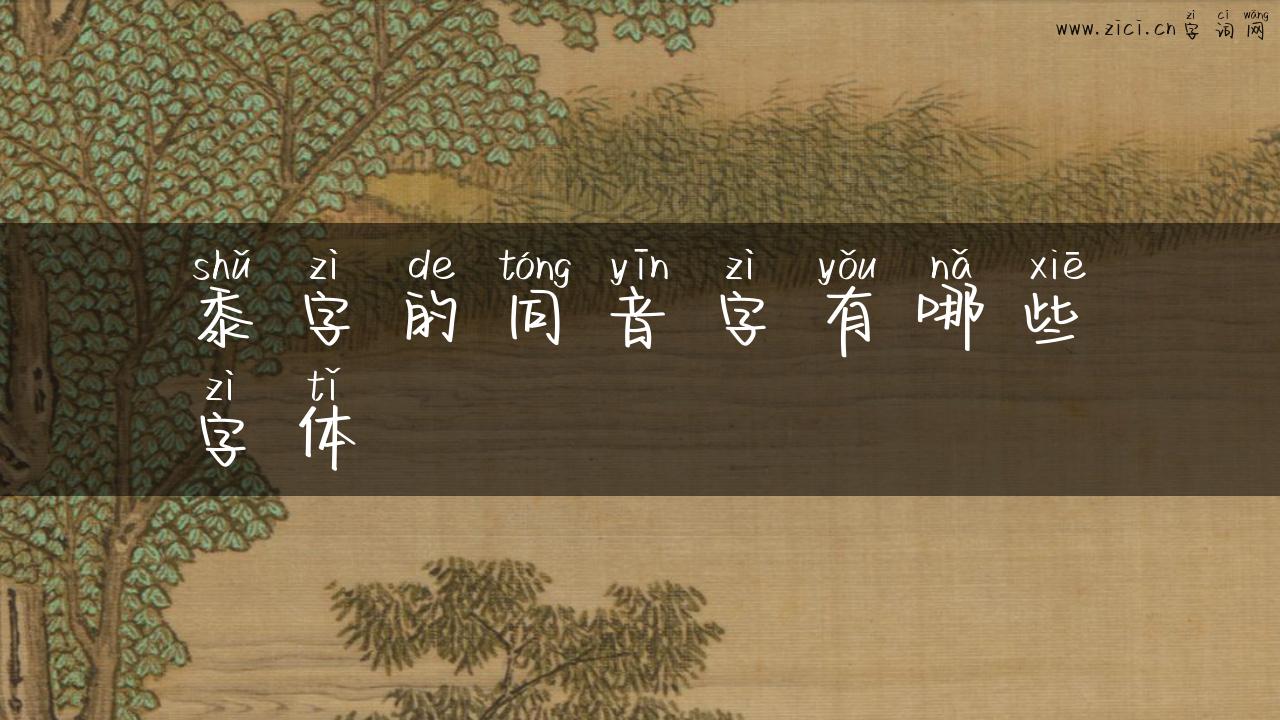 zì cí wǎng
www.zici.cn字词网
shǔ zì de tóng yīn zì yǒu nǎ xiē
黍字的同音字有哪些
zì tǐ
字体